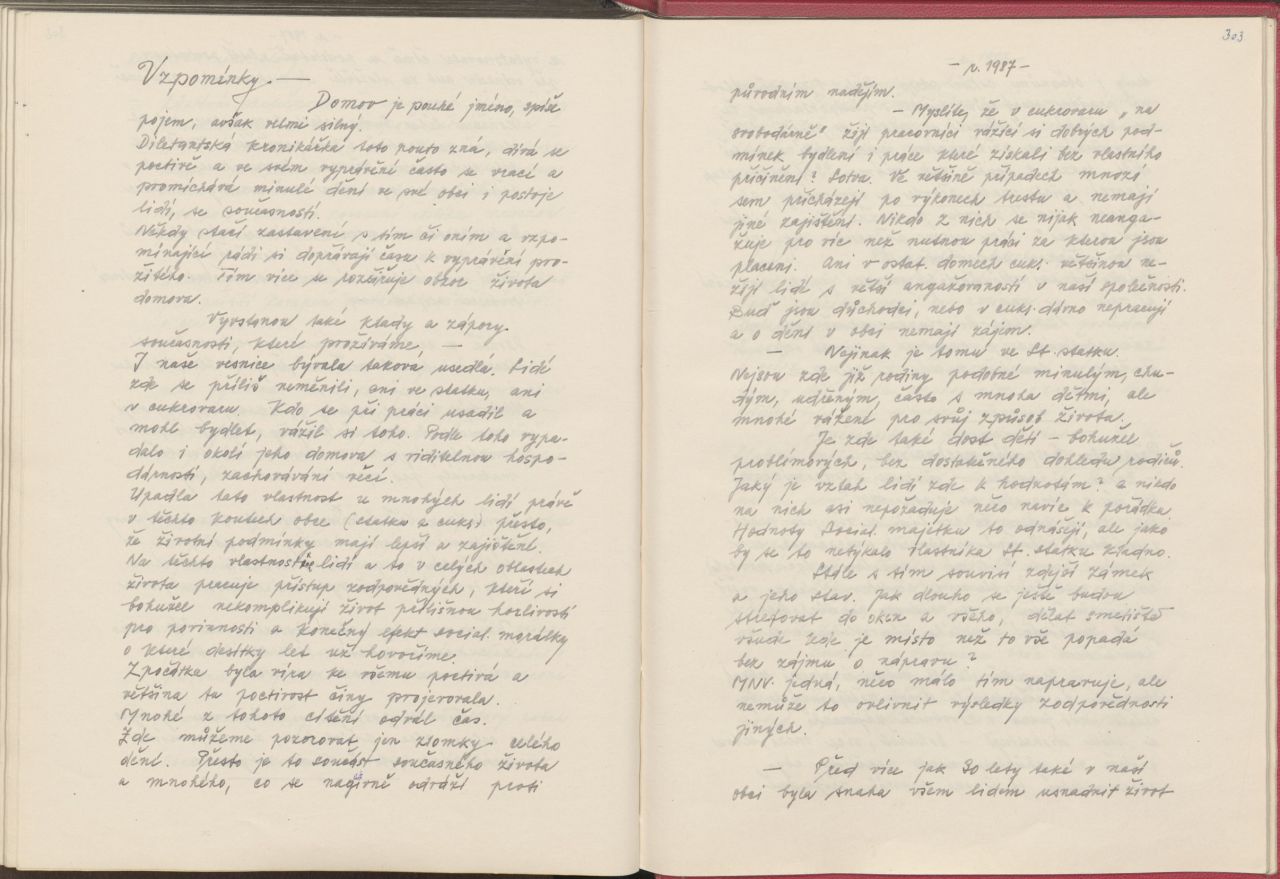 Vzpomínky. —
Domov je pouhé jméno, spíše
pojem, avšak velmi silný.
Diletantská kronikářka toto pouto zná, dívá se
poctivě a ve svém vyprávění často se vrací a
promíchává minulé dění ve své obci i postoje
lidí, se současností.
Někdy stačí zastavení s tím či oním a vzpo-
mínající rádi si dopřávají času k vyprávění pro-
žitého. Tím více se rozšiřuje obzor života
domova.
Vyvstanou také klady a zápory
současnosti, které prožíváme. —
I naše vesnice bývala taková usedlá. Lidé
zde se příliš neměnili, ani ve statku, ani
v cukrovaru. Kdo se při práci usadil a
mohl bydlet, vážil si toho. Podle toho vypa-
dalo i okolí jeho domova s viditelnou hospo-
dárností, zachovávání věcí.
Upadla tato vlastnost u mnohých lidí právě
v těchto koutech obce (statku a cuks) přesto,
že životní podmínky mají lepší a zajištění.
Na těchto vlastnostech lidí a to v celých oblastech
života pracuje přístup zodpovědných, kteří si
bohužel nekomplikují život přílišnou horlivostí
pro povinnosti a konečný efekt social. morálky
o které desítky let už hovoříme.
Zpočátku byla víra ke všemu poctivá a
většina tu poctivost činy projevovala.
Mnohé z tohoto cítění odvál čas.
Zde můžeme pozorovat jen zlomky celého
dění. Přesto je to součást současného života
a mnohého, co se nagativně odráží proti
303
- r. 1987 -
původním nadějím.
— Myslíte, že v cukrovaru „na
svobodárně" žijí pracovníci vážící si dobrých pod-
mínek bydlení i práce které získali bez vlastního
přičinění? Sotva. Ve většině případech mnozí
sem přicházejí po výkonech trestu a nemají
jiné zajištění. Nikdo z nich se nijak neanga-
žuje pro víc než nutnou práci za kterou jsou
placeni. Ani v ostat. domech cuks. většinou ne-
žijí lidé s větší angažovaností v naší společnosti.
Buď jsou důchodci, nebo v cuks. dávno nepracují
a o dění v obci nemají zájem.
— Nejinak je tomu ve St. statku.
Nejsou zde již rodiny podobné minulým, chu-
dým, udřeným, často s mnoha dětmi, ale
mnohé vážení pro svůj způsob života.
Je zde také dost dětí — bohužel
problémových, bez dostatečného dohledu rodičů.
Jaký je vztah lidí zde k hodnotám? a nikdo
na nich asi nepožaduje něco navíc k pořádku.
Hodnoty Social. majetku to odnášejí, ale jako
by se to netýkalo vlastníka St. statku Kladno.
Stále s tím souvisí zdejší zámek
a jeho stav. Jak dlouho se ještě budou
strefovat do oken a všeho, dělat smetiště
všude kde je místo než to vše popadá
bez zájmu o nápravu?
MNV. jedná, něco málo tím napravuje, ale
nemůže to ovlivnit výsledky zodpovědnosti
jiných.
— Před více jak 30 lety také v naší
obci byla snaha všem lidem usnadnit život